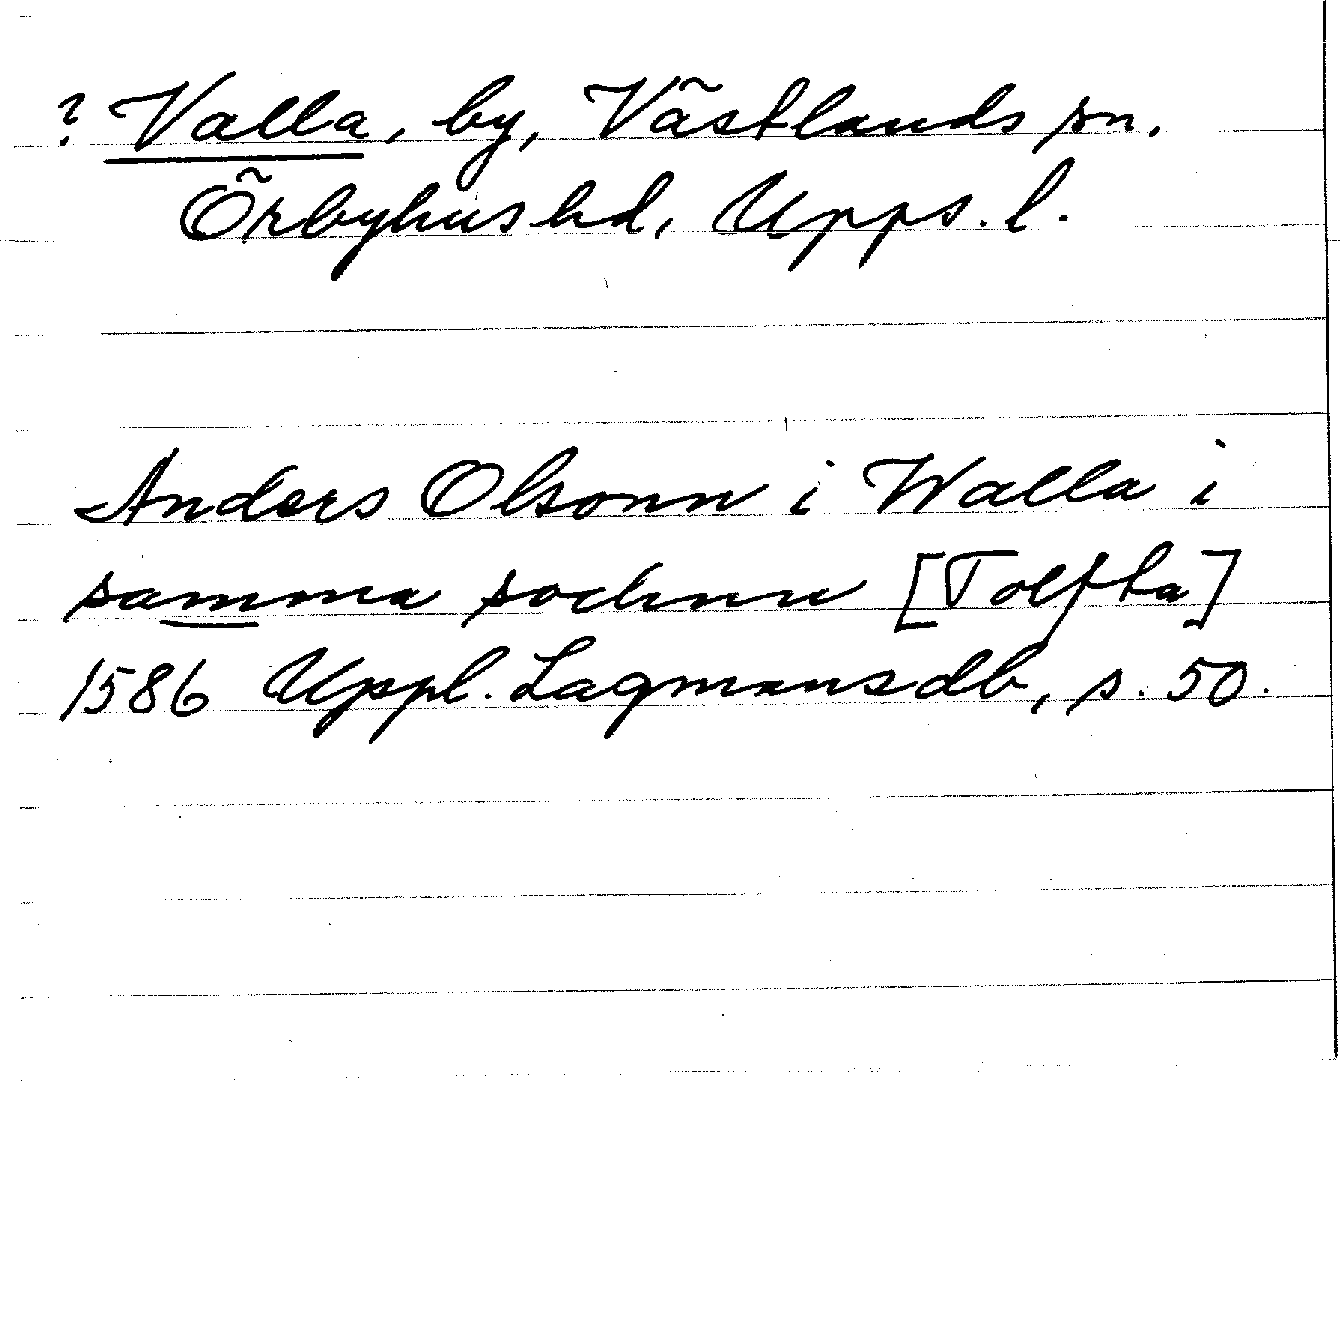 ? Valla, by, Västlands sn.
Örbyhus hd, Upps. l.
Anders Olsonn i Walla i
samma sochnn [Tolfta]
1586 Uppl. Lagmansdb, s. 50.